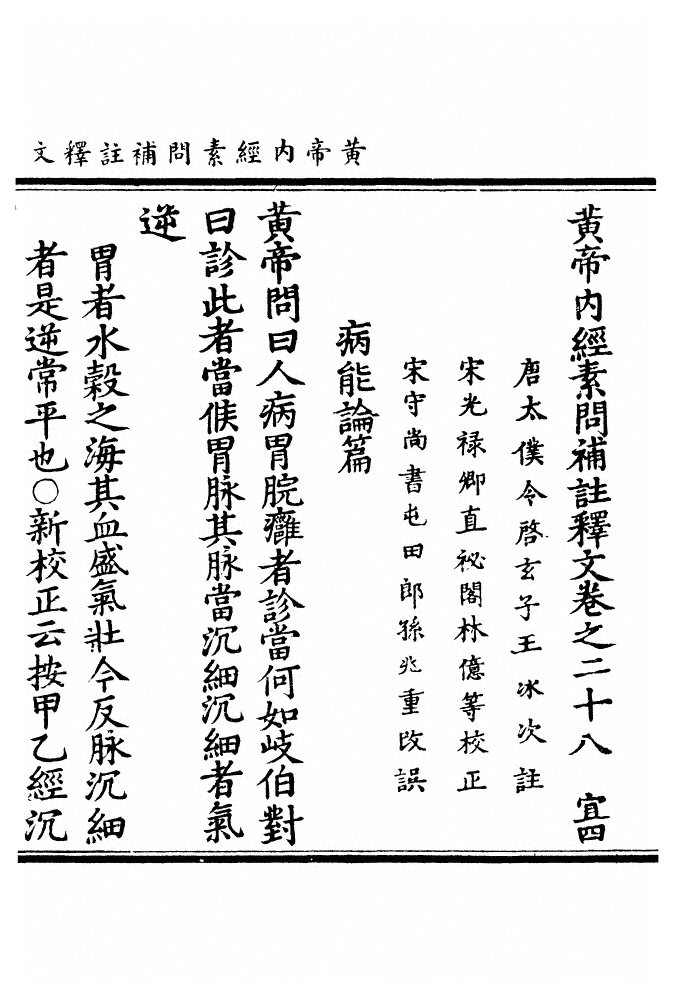 黃帝內經素問補註釋文
黃帝內經素問補註釋文卷之二十八　宜四
唐太僕令啓玄子王冰次註
宋光禄卿直祕閣林億等校正
宋守尚書屯田郎孫兆重改誤
病能論篇
黃帝問曰人病胃脘癰者診當何如岐伯對
曰診此者當候胃脉其脉當沉細沉細者氣
逆
胃者水穀之海其血盛氣壯今反脉沉細
者是逆常平也○新校正云按甲乙經沉